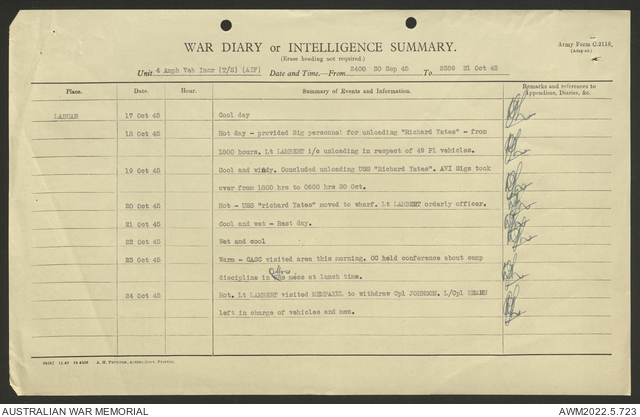 WAR DIARY or INTELLIGENCE SUMMARY.
(Erase heading not required.)
Army Form C.2118.
(Adapted.)
Unit 4 Amph Veh Incr (T/S) (AIF) Date and Time.—From 2400 30 Sep 45 To 2359 31 Oct 45
Place. Date. Hour. Summary of Events and Information. Remarks and references to Appendices, Diaries, &c.
LABUAN 17 Oct 45 Cool day
18 Oct 45 Hot day - provided Sig personnel for unloading "Richard Yates" - from
1800 hours. Lt LAMBERT i/c unloading in respect of 49 Pl vehicles.
19 Oct 45 Cool and windy. Concluded unloading USS "Richard Yates". AVI Sigs took
over from 1800 hrs to 0600 hrs 20 Oct.
20 Oct 45 Hot - USS "richard Yates" moved to wharf. Lt LAMBERT orderly officer.
21 Oct 45 Cool and wet - Rest day.
22 Oct 45 Wet and cool
23 Oct 45 Warm - CASC visited area this morning. OC held conference about camp
discipline in mess at lunch time.
24 Oct 45 Hot. Lt LAMBERT visited to withdraw Cpl JOHNSON. L/Cpl HEARN
left in charge of vehicles and men.
AUSTRALIAN WAR MEMORIAL
AWM2022.5.723